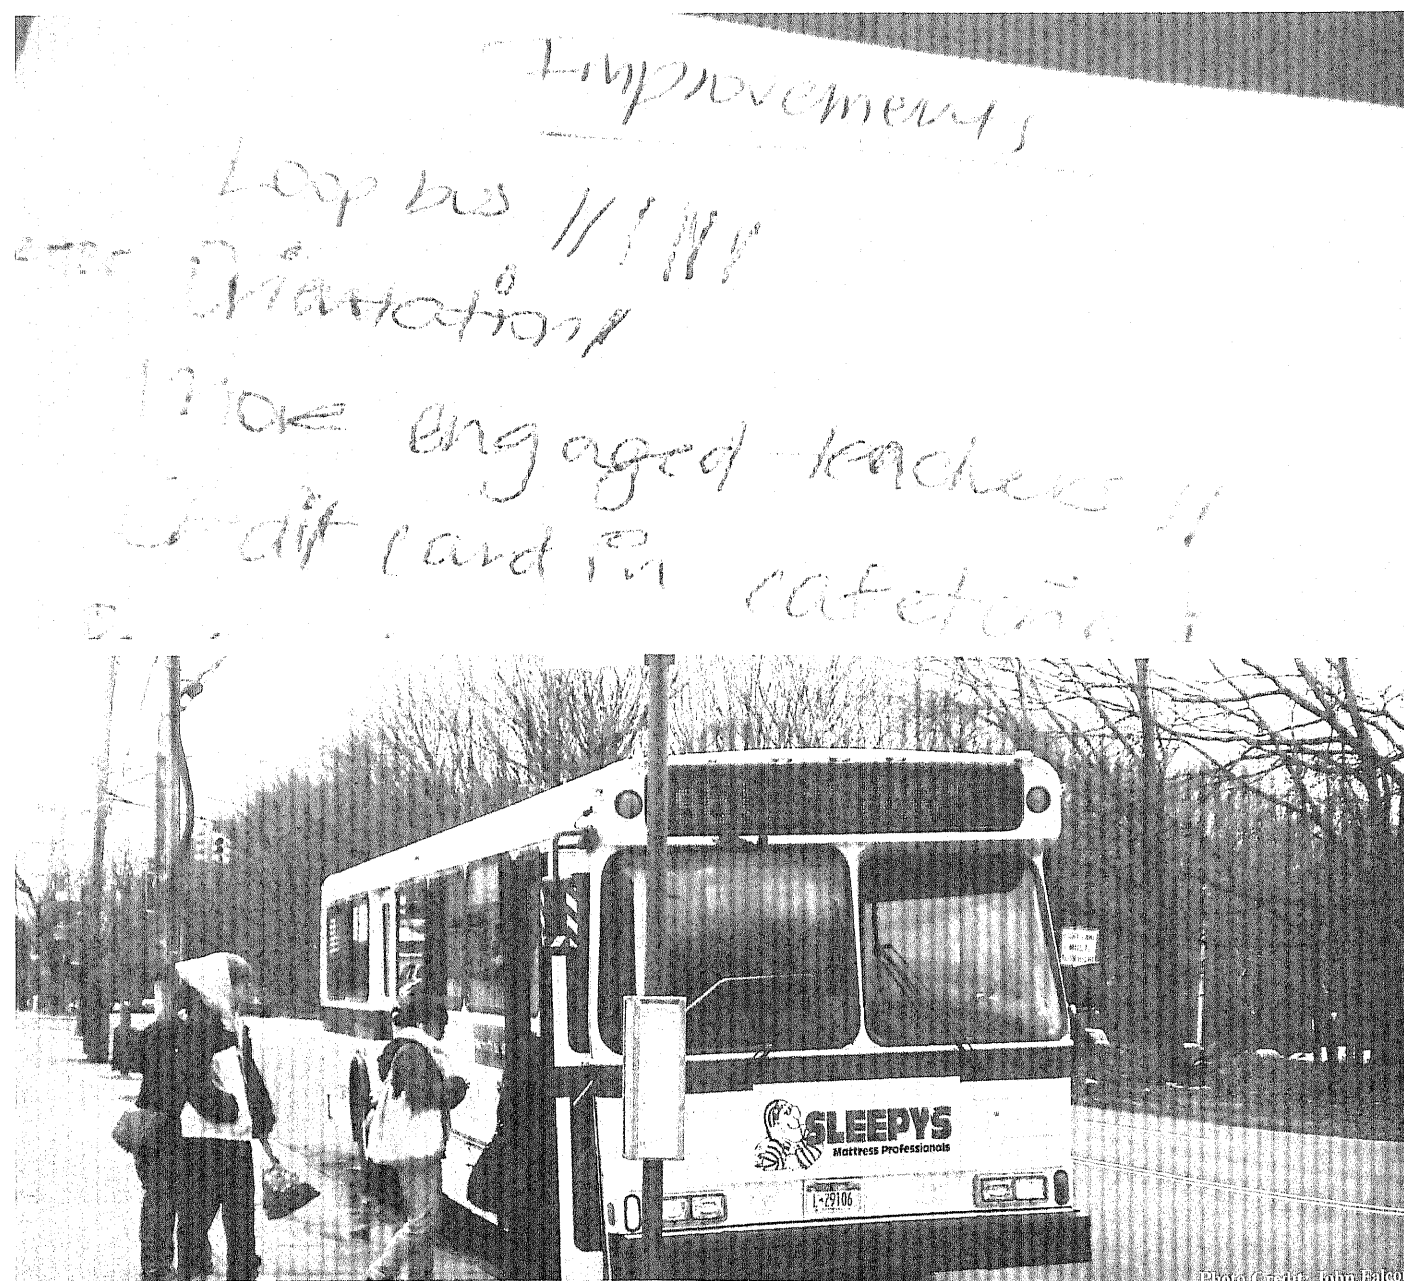 Improvements
Loop bus // / |||| //
Orientation /
More engaged teachers //
Credit card in cafeteria |
SLEEPYS
Mattress Professionals
L-29106